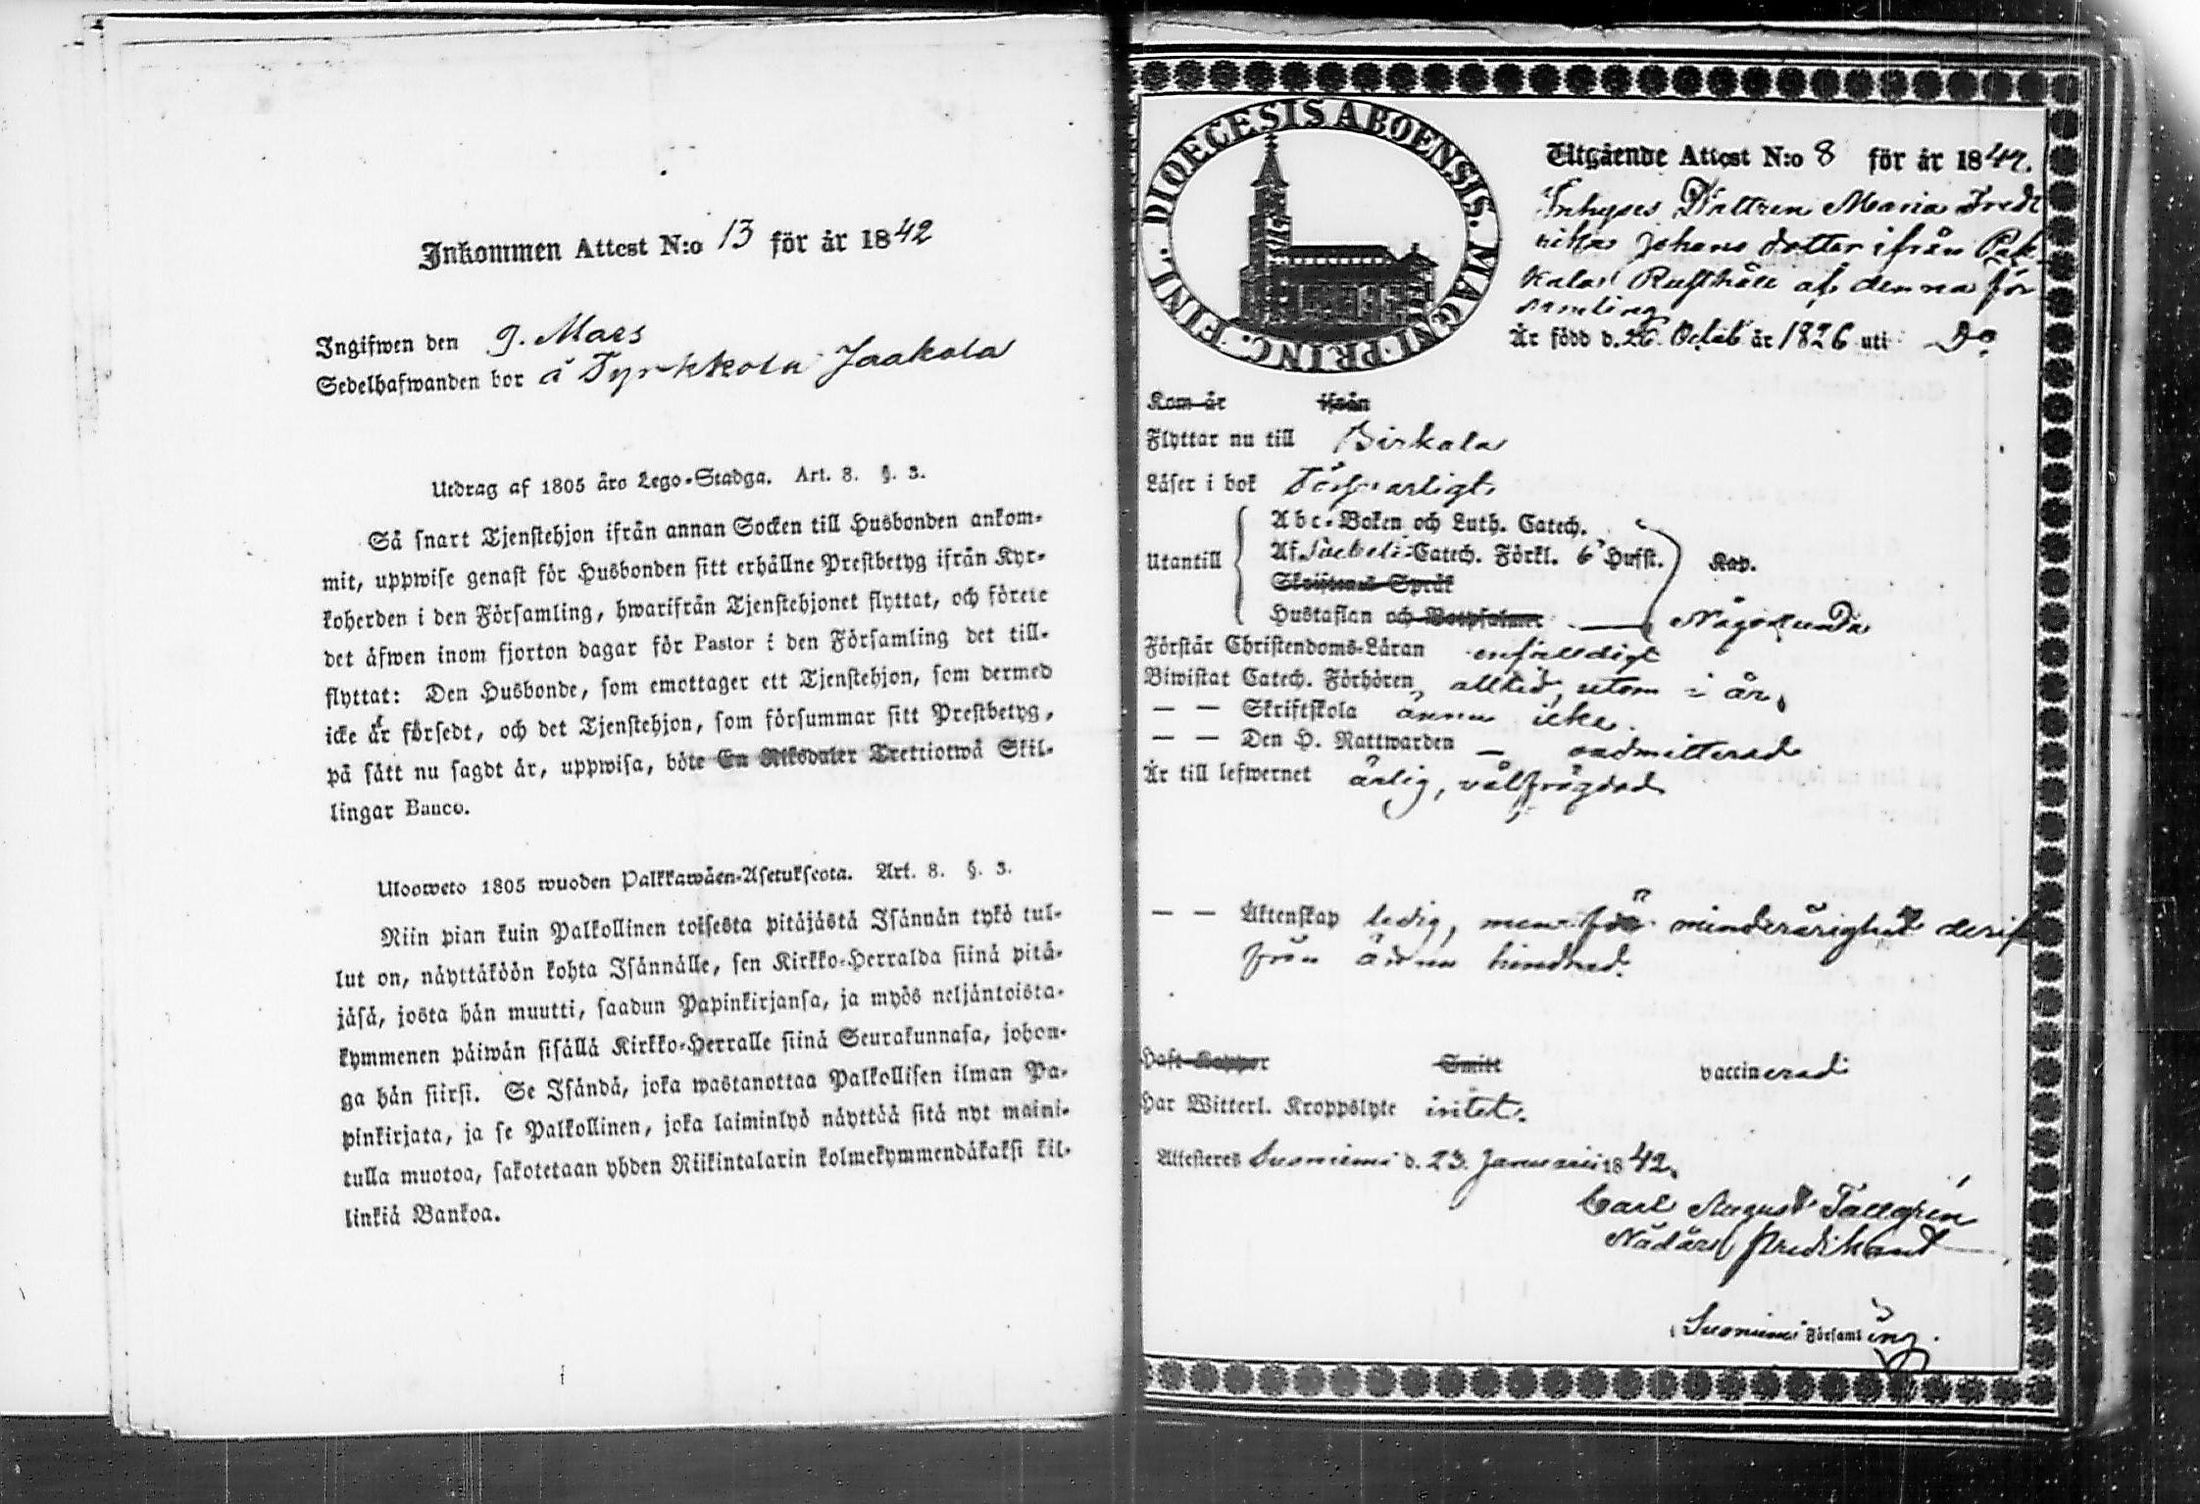 Inkommen Attest N:o 13 för år 1842
Ingifwen den 9. Mars
Sedelhafwanden bor å Tyrkkola Jaakola
Utdrag af 1805 års Lego-Stadga. Art. 8. §. 3.
Så snart Tjenstehjon ifrån annan Socken till Husbonden ankom-
mit, uppwise genast för Husbonden sitt erhållne Prestbetyg ifrån Kyr-
koherden i den Församling, hwarifrån Tjenstehjonet flyttat, och förete
det äfwen inom fjorton dagar för Pastor i den Församling det till-
flyttat: Den Husbonde, som emottager ett Tjenstehjon, som dermed
icke är försedt, och det Tjenstehjon, som försummar sitt Prestbetyg,
på sätt nu sagdt är, uppwisa, böte En Riksdaler Trettiotwå Skil-
lingar Banco.
Ulosweto 1805 wuoden Palkkawäen-Asetuksesta. Art. 8. §. 3.
Niin pian kuin Palkollinen toisesta pitäjästä Isännän tykö tul-
lut on, näyttäköön kohta Isännälle, sen Kirkko-Herralda siinä pitä-
jäsä, josta hän muutti, saadun Papinkirjansa, ja myös neljäntoista-
kymmenen päiwän sisällä Kirkko-Herralle siinä Seurakunnasa, johon-
ga hän siirsi. Se Isändä, joka wastanottaa Palkollisen ilman Pa-
pinkirjata, ja se Palkollinen, joka laiminlyö näyttää sitä nyt maini-
tulla muotoa, sakotetaan yhden Riikintalarin kolmekymmendäkaksi kil-
linkiä Bankoa.
DIOECESIS ABOENSIS. MAGNI PRINC. FINL.
Utgående Attest N:o 8 för år 1842.
Inhyses Dottren Maria Fred
rika Johans dotter ifrån Pek-
kala Rusthåll af denna för
samling
Är född d. 26. Octob år 1826 uti Do
Kom år ifrån
Flyttar nu till Birkala
Läser i bok Försvarligt
Utantill
Abc-Boken och Luth. Catech.
Af Svebeli Catech. Förkl. 6 Hufst. Kap.
Skriftenes Språk
Hustaflan och Botpsalmer Någorlunda
Förstår Christendoms-Läran enfaldigt
Biwistat Catech. Förhören alltid, utom i år.
— — Skriftskola ännu icke.
— — Den H. Nattwarden — oadmitterad
Är till lefwernet ärlig, välfrägdad
— — Äktenskap ledig, men för minderårighet derif
från ännu hindrad.
Haft Koppor Smitt vaccinerad
Har Witterl. Kroppslyte intet.
Attesteres Suoniemi d. 23. Januarii 1842.
Carl August Tallgrén
Nådårs Predikant
Suoniemi Församling.